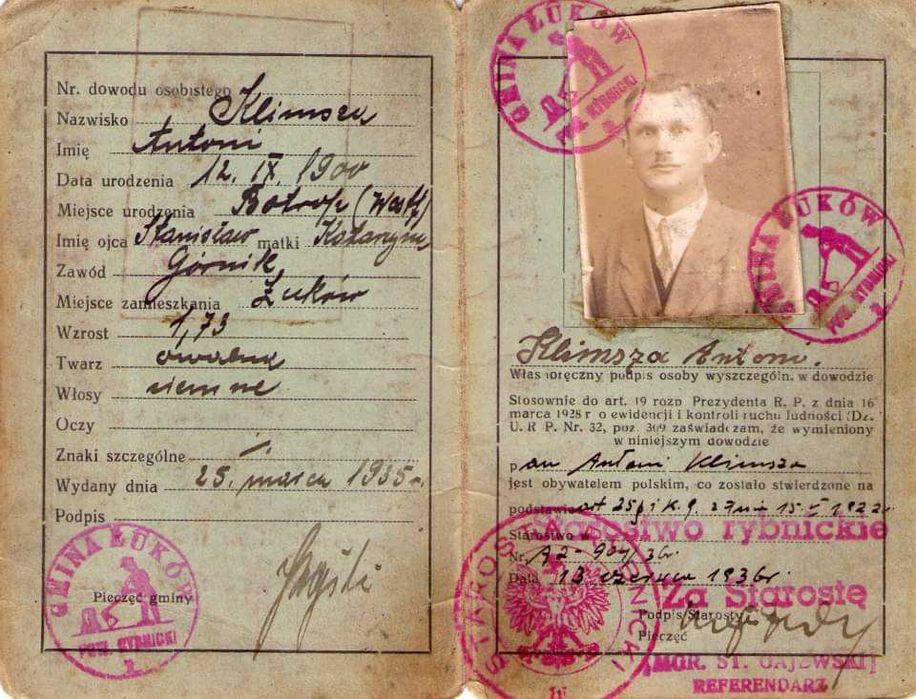 Nr. dowodu osobistego
Nazwisko Klimsza
Imię Antoni
Data urodzenia 12. IX. 1900
Miejsce urodzenia Botrop (Westf)
Imię ojca Stanisław matki Katarzyna
Zawód Górnik
Miejsce zamieszkania Żuków
Wzrost 1,73
Twarz owalna
Włosy ciemne
Oczy
Znaki szczególne
Wydany dnia 25. marca 1935 r.
Podpis
Pieczęć gminy
GMINA ŁUKÓW
POW. RYBNICKI
GMINA ŁUKÓW
POW. RYBNICKI
2
GMINA ŁUKÓW
POW. RYBNICKI
2
Klimsza Antoni.
Własnoręczny podpis osoby wyszczególn. w dowodzie
Stosownie do art. 19 rozp Prezydenta R. P. z dnia 16
marca 1928 r o ewidencji i kontroli ruchu ludności (Dz.
U. R P. Nr. 32, poz. 309 zaświadczam, że wymieniony
w niniejszym dowodzie
pan Antoni Klimsza
jest obywatelem polskim, co zostało stwierdzone na
podstawie art 25
Starostwo rybnickie
Starostwo w
Nr. 36r.
Data 13 czerwca 1936r.
Za Starostę
Podpis Starosty
Pieczęć
STAROSTA RYBNICKI
(MGR. ST. GAJEWSKI)
REFERENDARZ